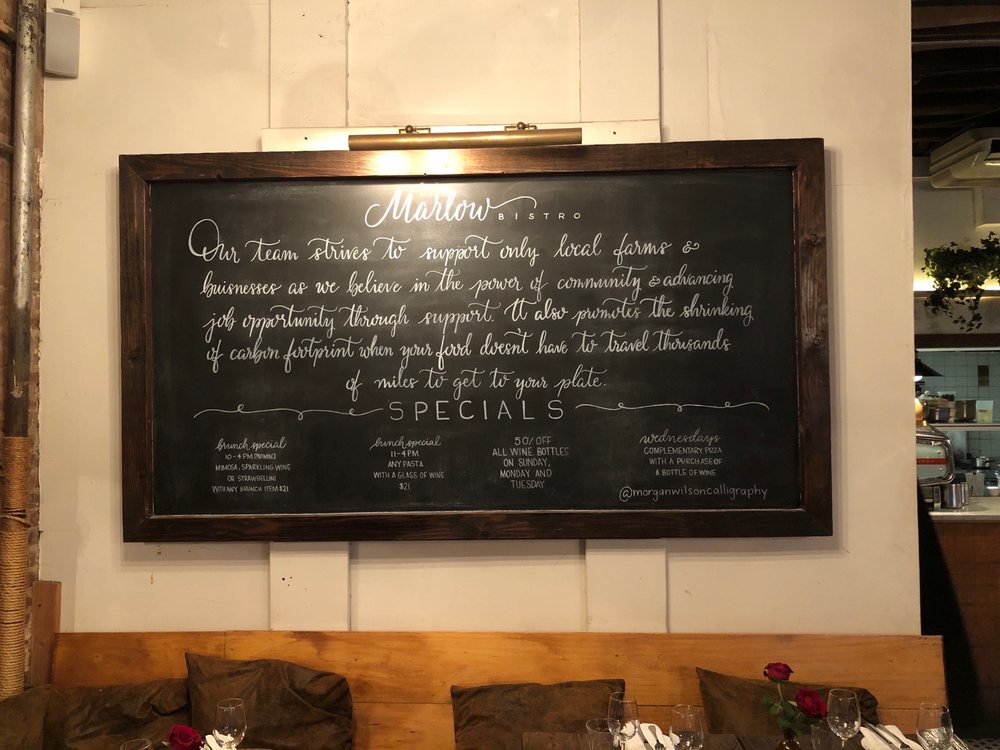 Marlow BISTRO
Our team strives to support only local farms &
buisnesses as we believe in the power of community & advancing
job opportunity through support. It also promotes the shrinking
of carbon footprint when your food doesnt have to travel thousands
of miles to get to your plate.
SPECIALS
brunch special
10-4 PM (90MIN)
MIMOSA, SPARKLING WINE
OR STRAWBELLINI
WITH ANY BRUNCH ITEM $21
lunch special
11-4PM
ANY PASTA
WITH A GLASS OF WINE
$21
50% OFF
ALL WINE BOTTLES
ON SUNDAY,
MONDAY AND
TUESDAY
wednesdays
COMPLEMENTARY PIZZA
WITH A PURCHASE OF
A BOTTLE OF WINE
@morganwilsoncalligraphy